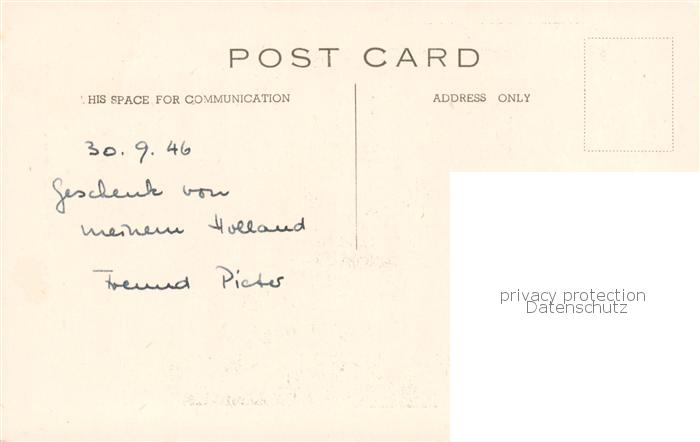 POST CARD
HIS SPACE FOR COMMUNICATION
ADDRESS ONLY
30. 9. 46
Geschenk von
meinem Holland
Freund Pieter
privacy protection
Datenschutz